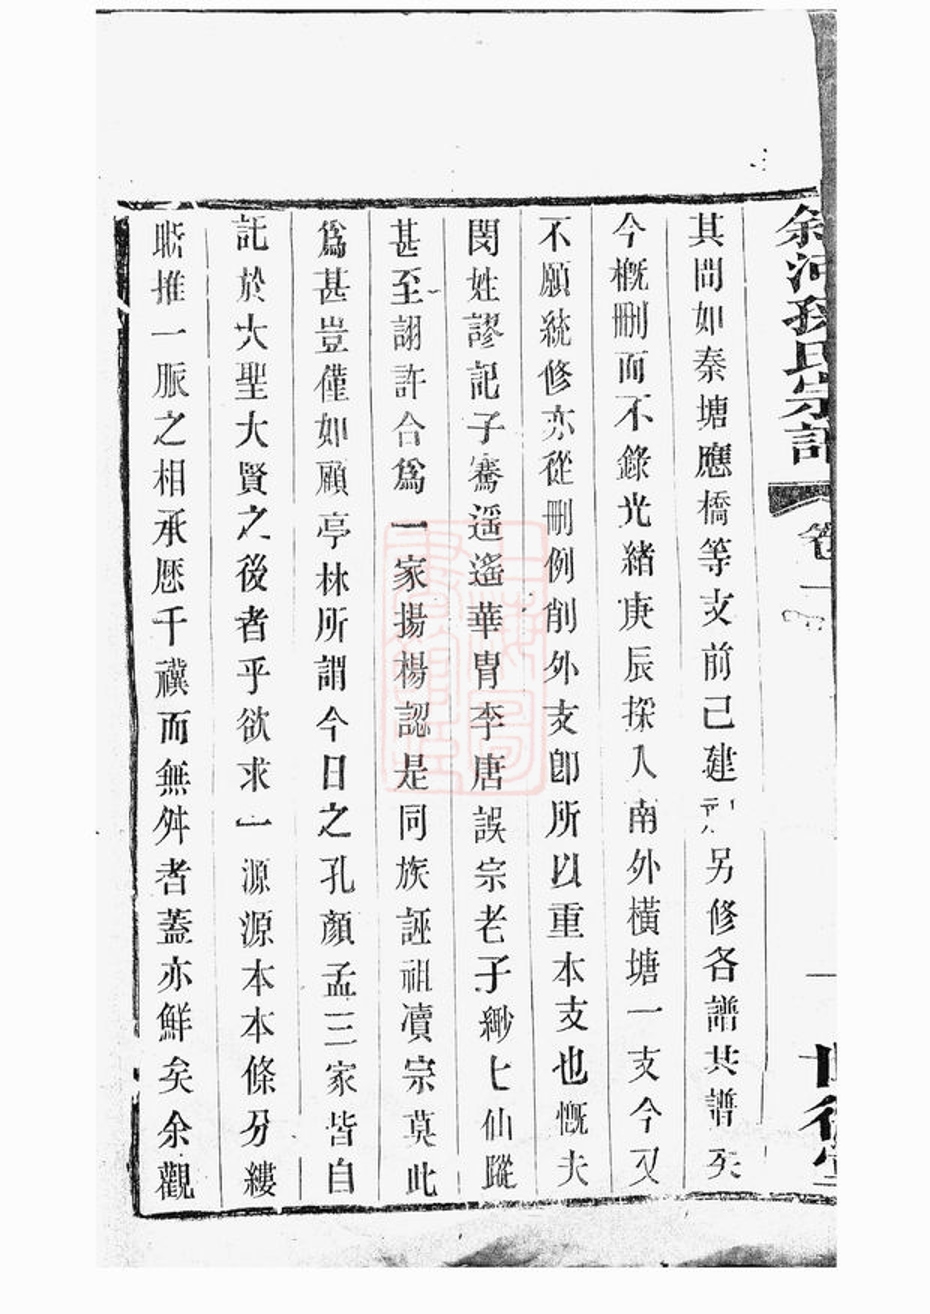 余河孫氏宗譜 卷一 世德堂
其間如秦塘應橋等支前己建祠另修各譜共譜矣
今概刪而不錄光緒庚辰採入南外橫塘一支今又
不願統修亦從刪例削外支卽所以重本支也慨夫
閔姓謬記子騫遥遙華胄李唐誤宗老子緲乜仙蹤
甚至詡許合爲一家揚楊認是同族誣祖瀆宗莫此
爲甚豈僅如顧亭林所謂今日之孔顏孟三家皆自
託於大聖大賢之後者乎欲求一源源本本條分縷
晣推一脈之相承歷千禩而無舛者蓋亦鮮矣余觀